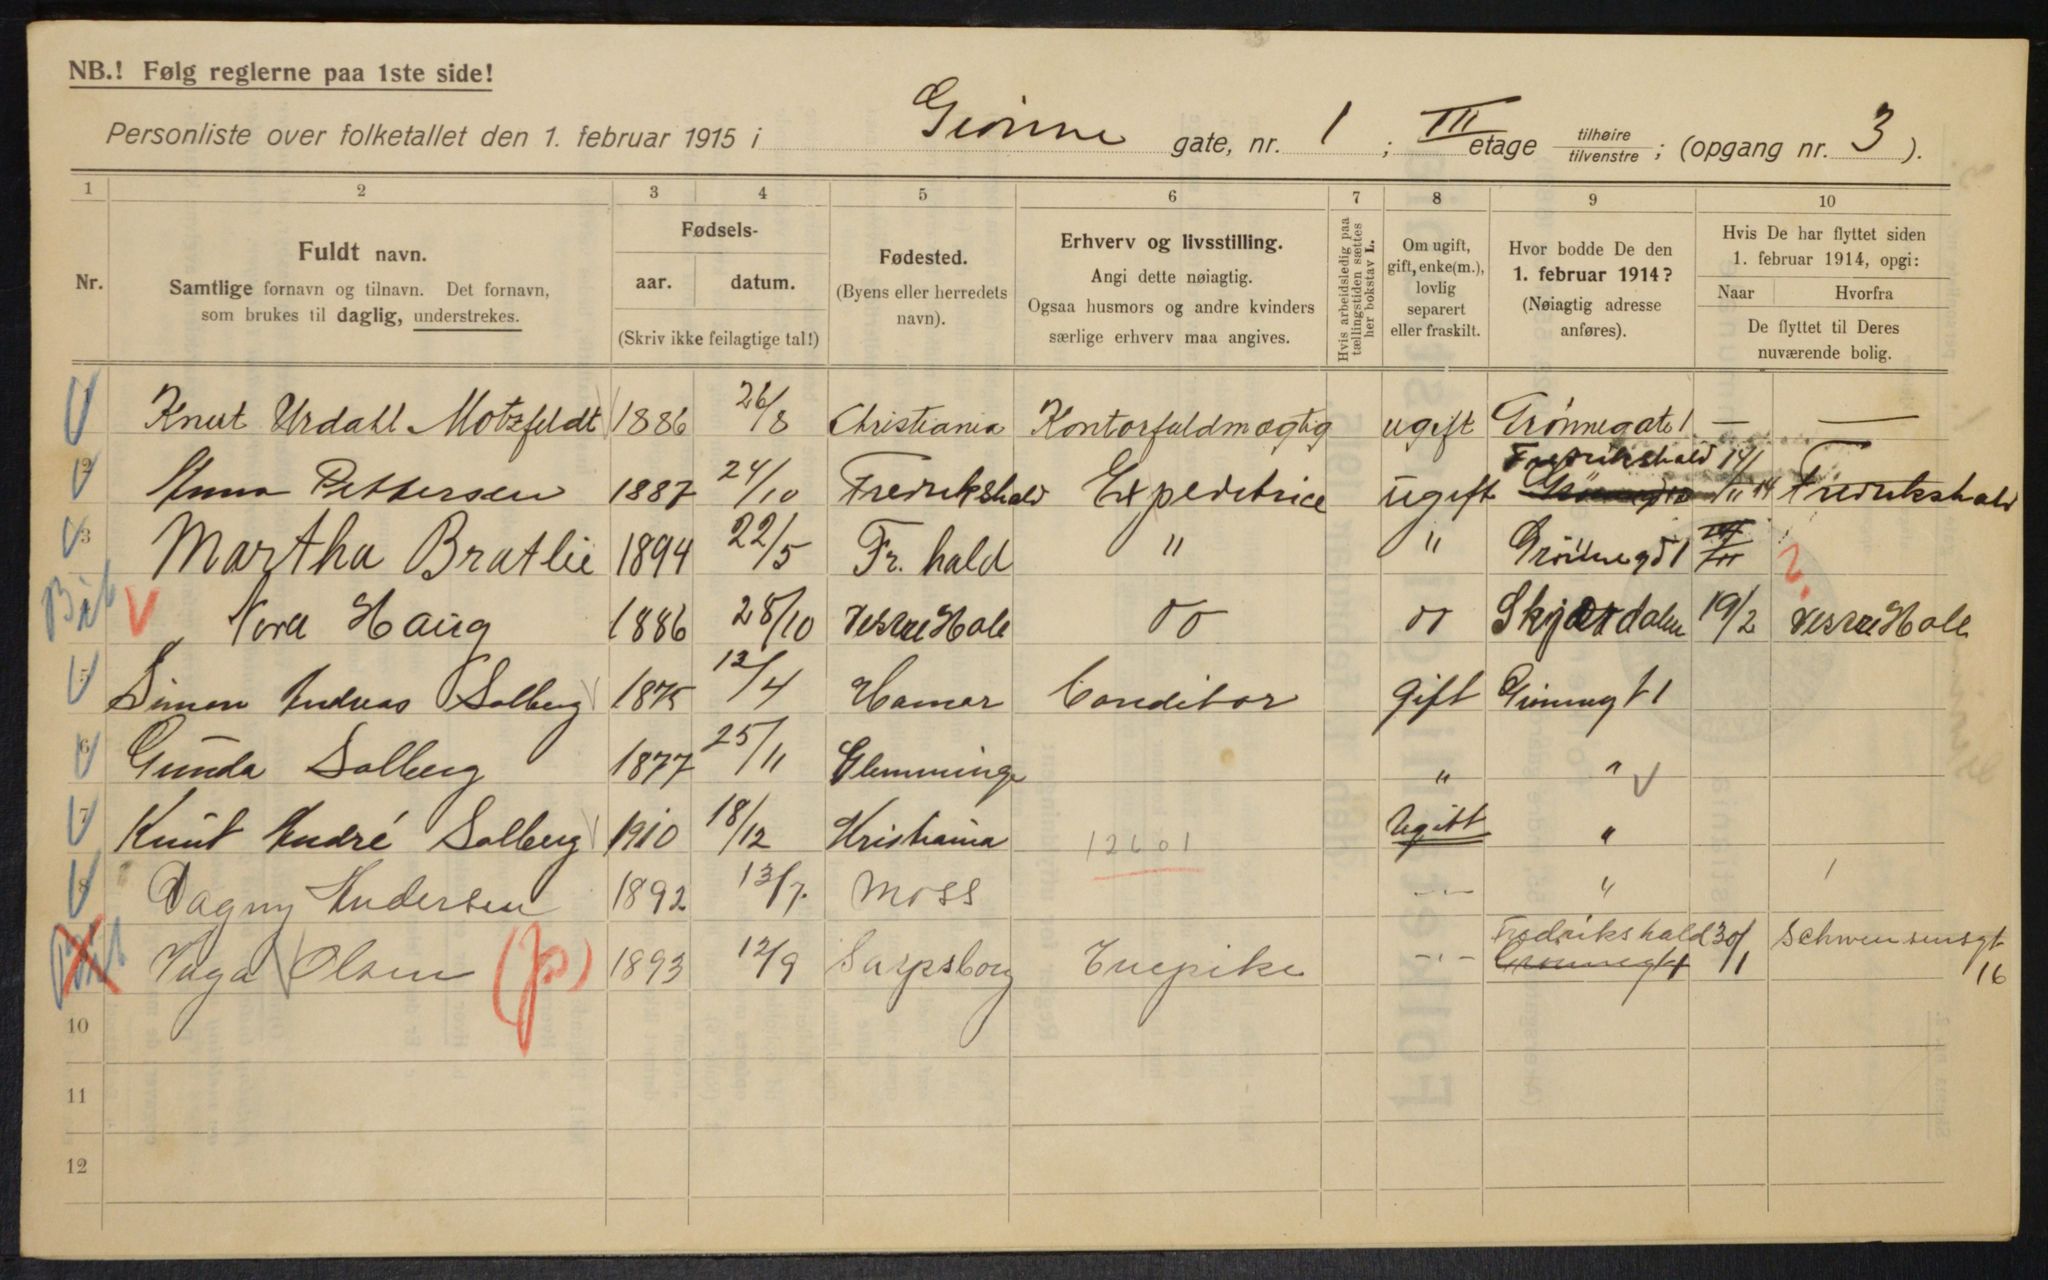 NB.! Følg reglerne paa 1ste side!
Personliste over folketallet den 1. februar 1915 i Grönne gate, nr. 1 ; III etage tilhøire tilvenstre ; (opgang nr. 3 ).
1 2 3 4 5 6 7 8 9 10
Nr.
Fuldt navn.
Samtlige fornavn og tilnavn. Det fornavn,
som brukes til daglig, understrekes.
Fødsels-
aar. datum.
(Skriv ikke feilagtige tal!)
Fødested.
(Byens eller herredets
navn).
Erhverv og livsstilling.
Angi dette nøiagtig.
Ogsaa husmors og andre kvinders
særlige erhverv maa angives.
Hvis arbeidsledig paa
tællingstiden sættes
her bokstav L.
Om ugift,
gift, enke(m.),
lovlig
separert
eller fraskilt.
Hvor bodde De den
1. februar 1914?
(Nøiagtig adresse
anføres).
Hvis De har flyttet siden
1. februar 1914, opgi:
Naar Hvorfra
De flyttet til Deres
nuværende bolig.
1 Knut Urdahl Motzfeldt 1886 26/8 Christiania Kontorfuldmægtig ugift Grønnegate 1 — —
Fredrikshald 14/1
2 Anna Pettersen 1887 24/10 Fredrikshald Expeditrice ugift Fredrikshald
3 Martha Bratlie 1894 22/5 Fr. hald " " Grönnegd 1
Nora Haug 1886 28/10 Vestre Hole 19/2 Vestre Hole
5 Simon Andreas Solberg 1875 12/4 Hamar Conditor gift Grönnegt 1
6 Gunda Solberg 1877 25/11 Glemminge " "
7 Knut André Solberg 1910 18/12 Kristiania 12601 Ugift "
8 Dagny Andersen 1892 13/7. Moss -"- "
Fredrikshald 30/1 Schwensensgt
Inga Olsen 1893 12/9 Sarpsborg -"- Grönnegt 1 16
10
11
12